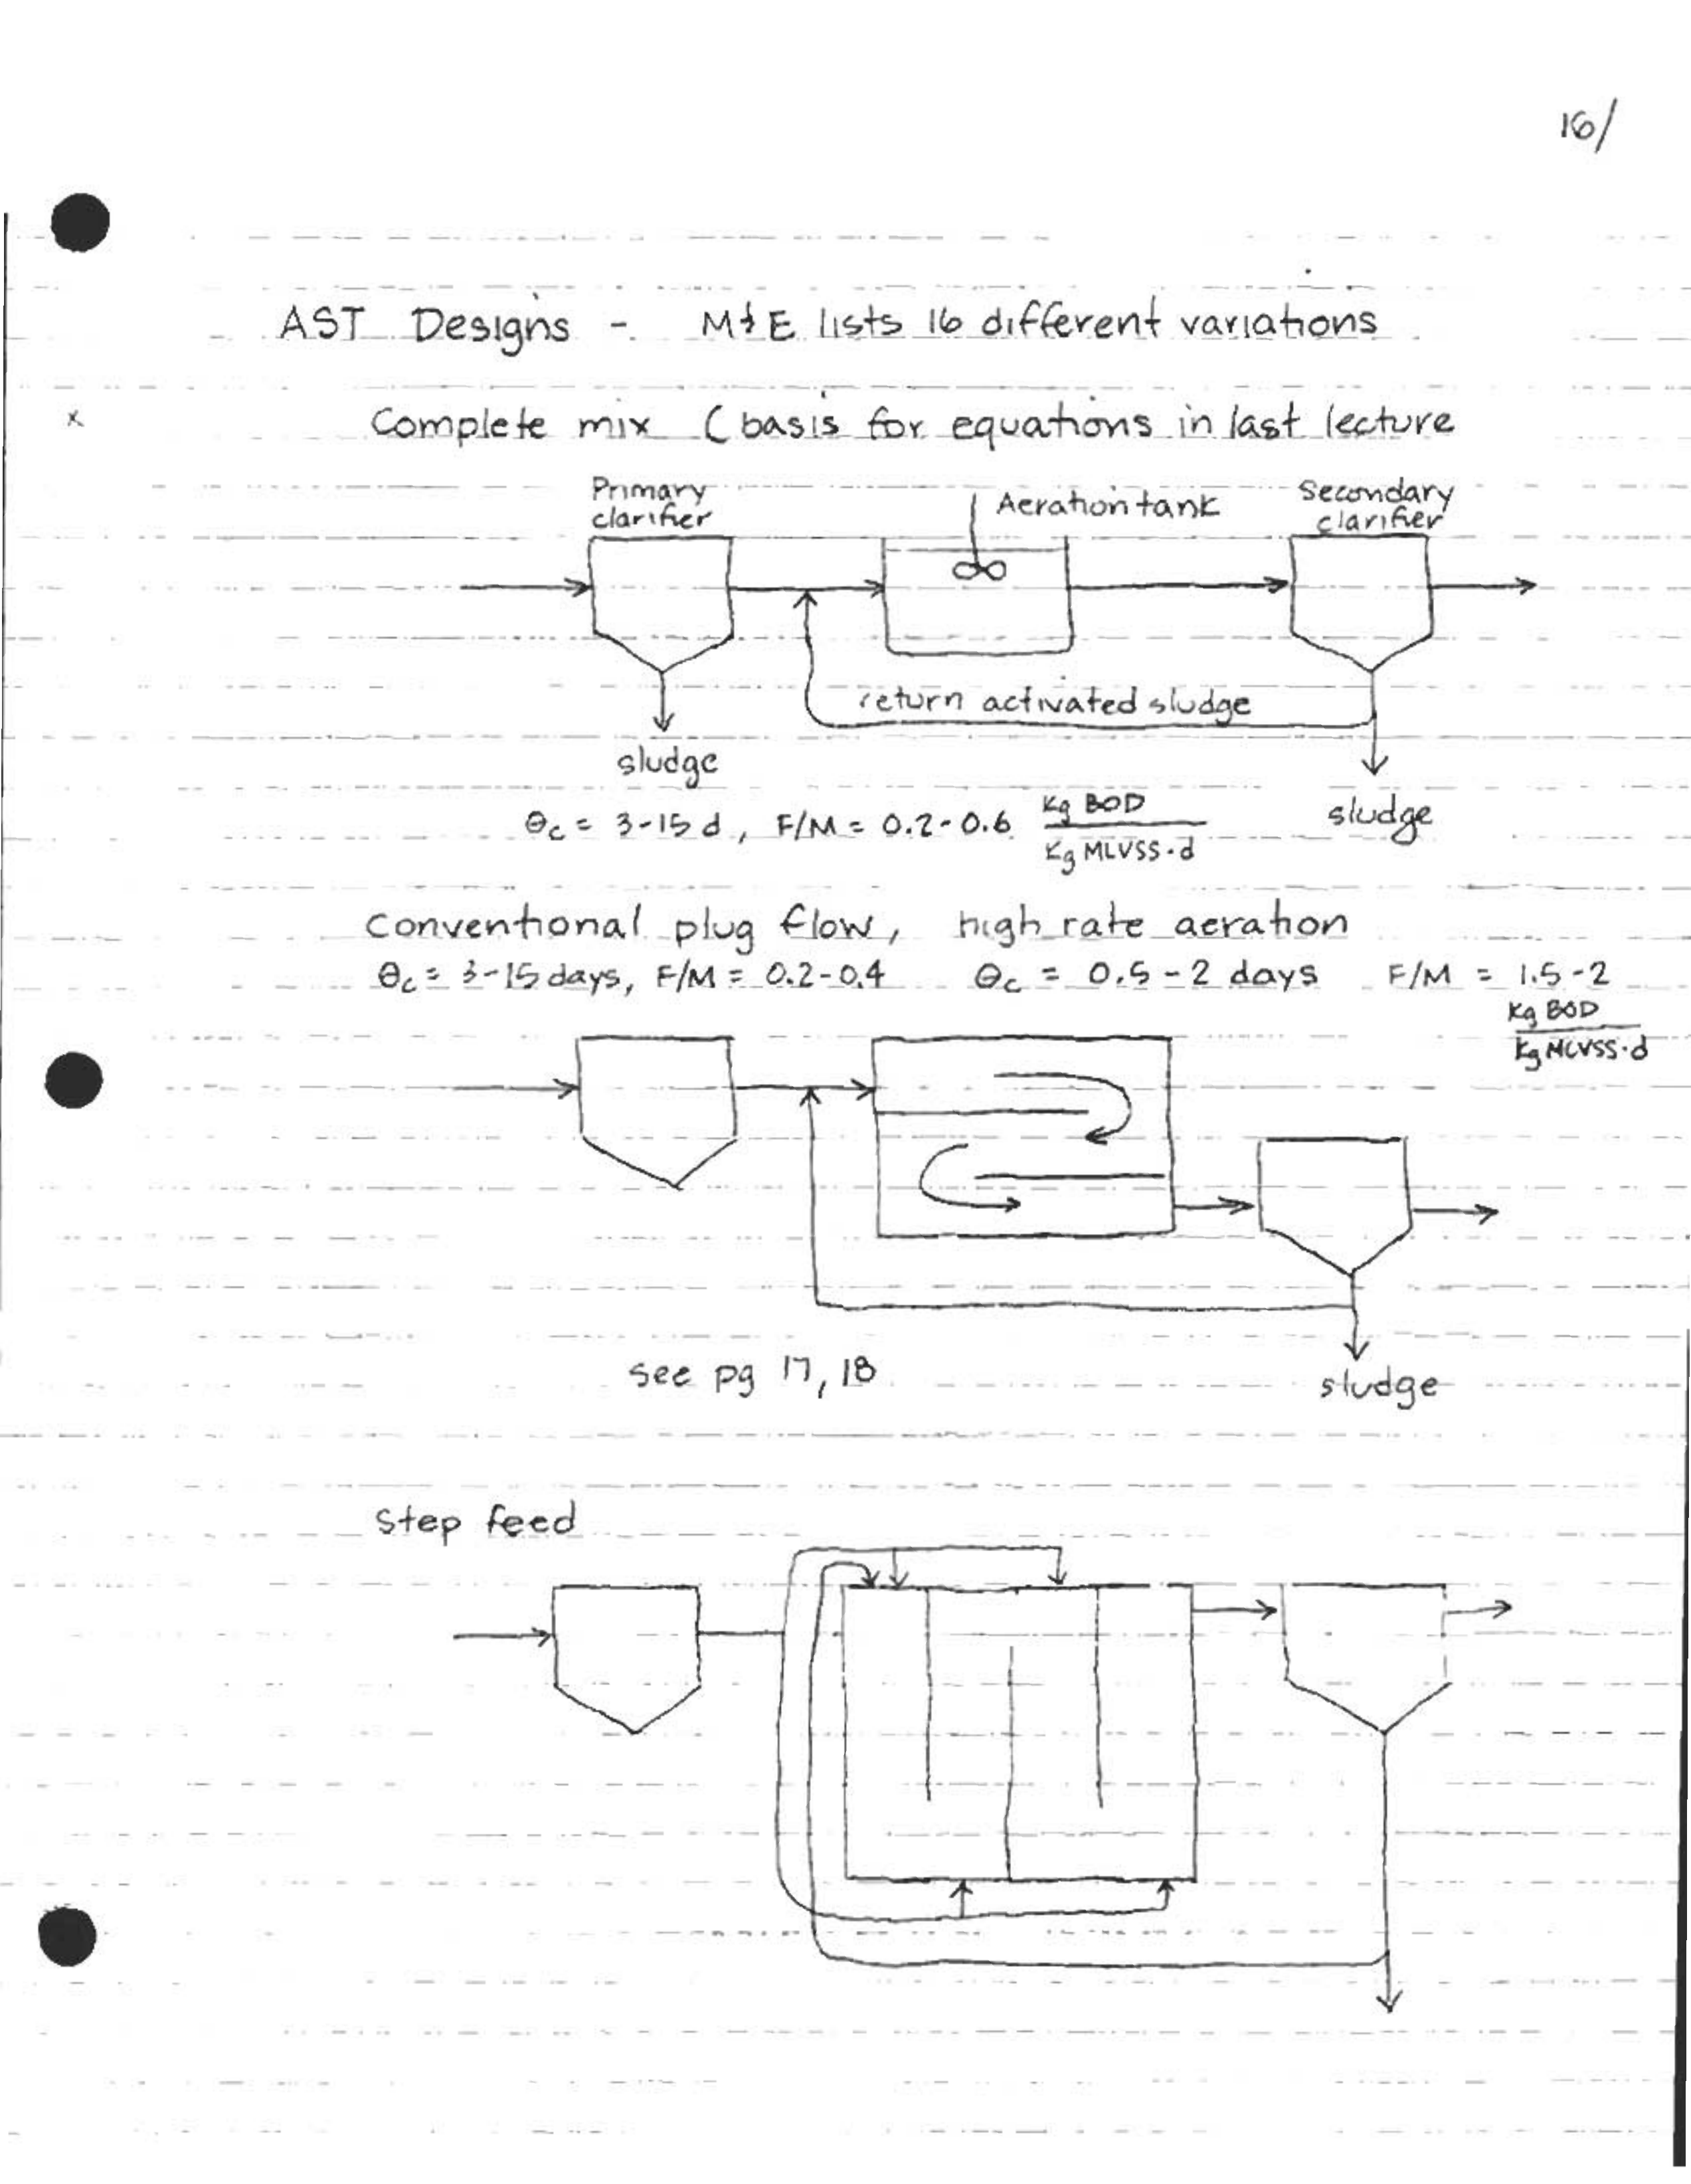 16/
AST Designs - M&E lists 16 different variations
x
Complete mix (basis for equations in last lecture
Primary
clarifier
Aeration tank
Secondary
clarifier
return activated sludge
sludge
sludge
Θc = 3-15 d, F/M = 0.2-0.6 Kg BOD
Kg MLVSS·d
Conventional plug flow, high rate aeration
Θc = 3-15 days, F/M = 0.2-0.4 Θc = 0.5-2 days F/M = 1.5-2
Kg BOD
Kg MLVSS·d
see pg 17, 18
sludge
Step feed